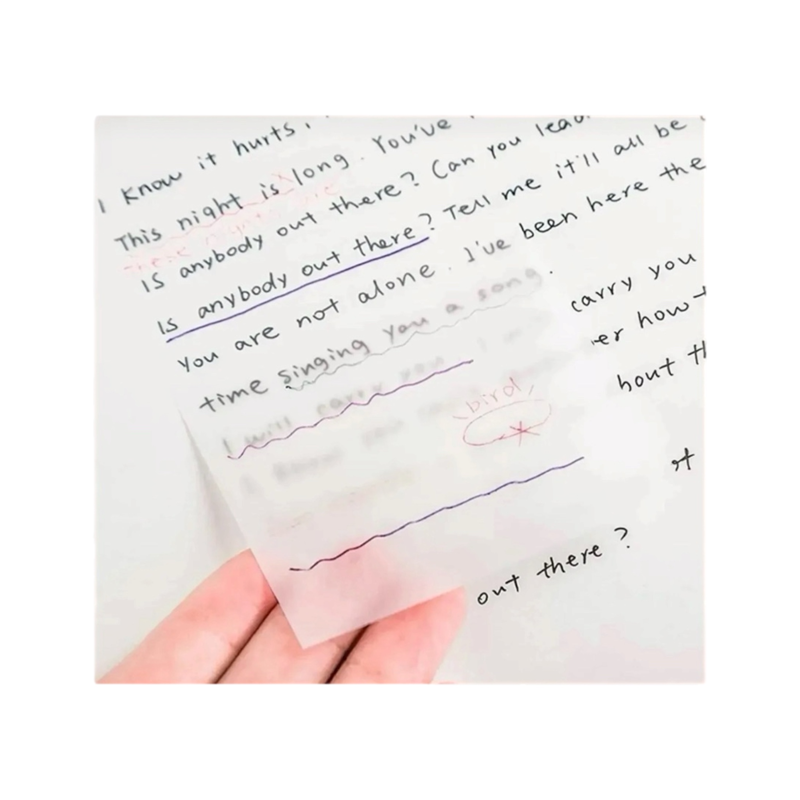 I know it hurts,
This night is long. You've
these nights are
Is anybody out there? Can you lead
Is anybody out there? Tell me it'll all be
You are not alone. I've been here the
time singing you a song.
I will carry you carry you
er how
bird
hout th
out there?